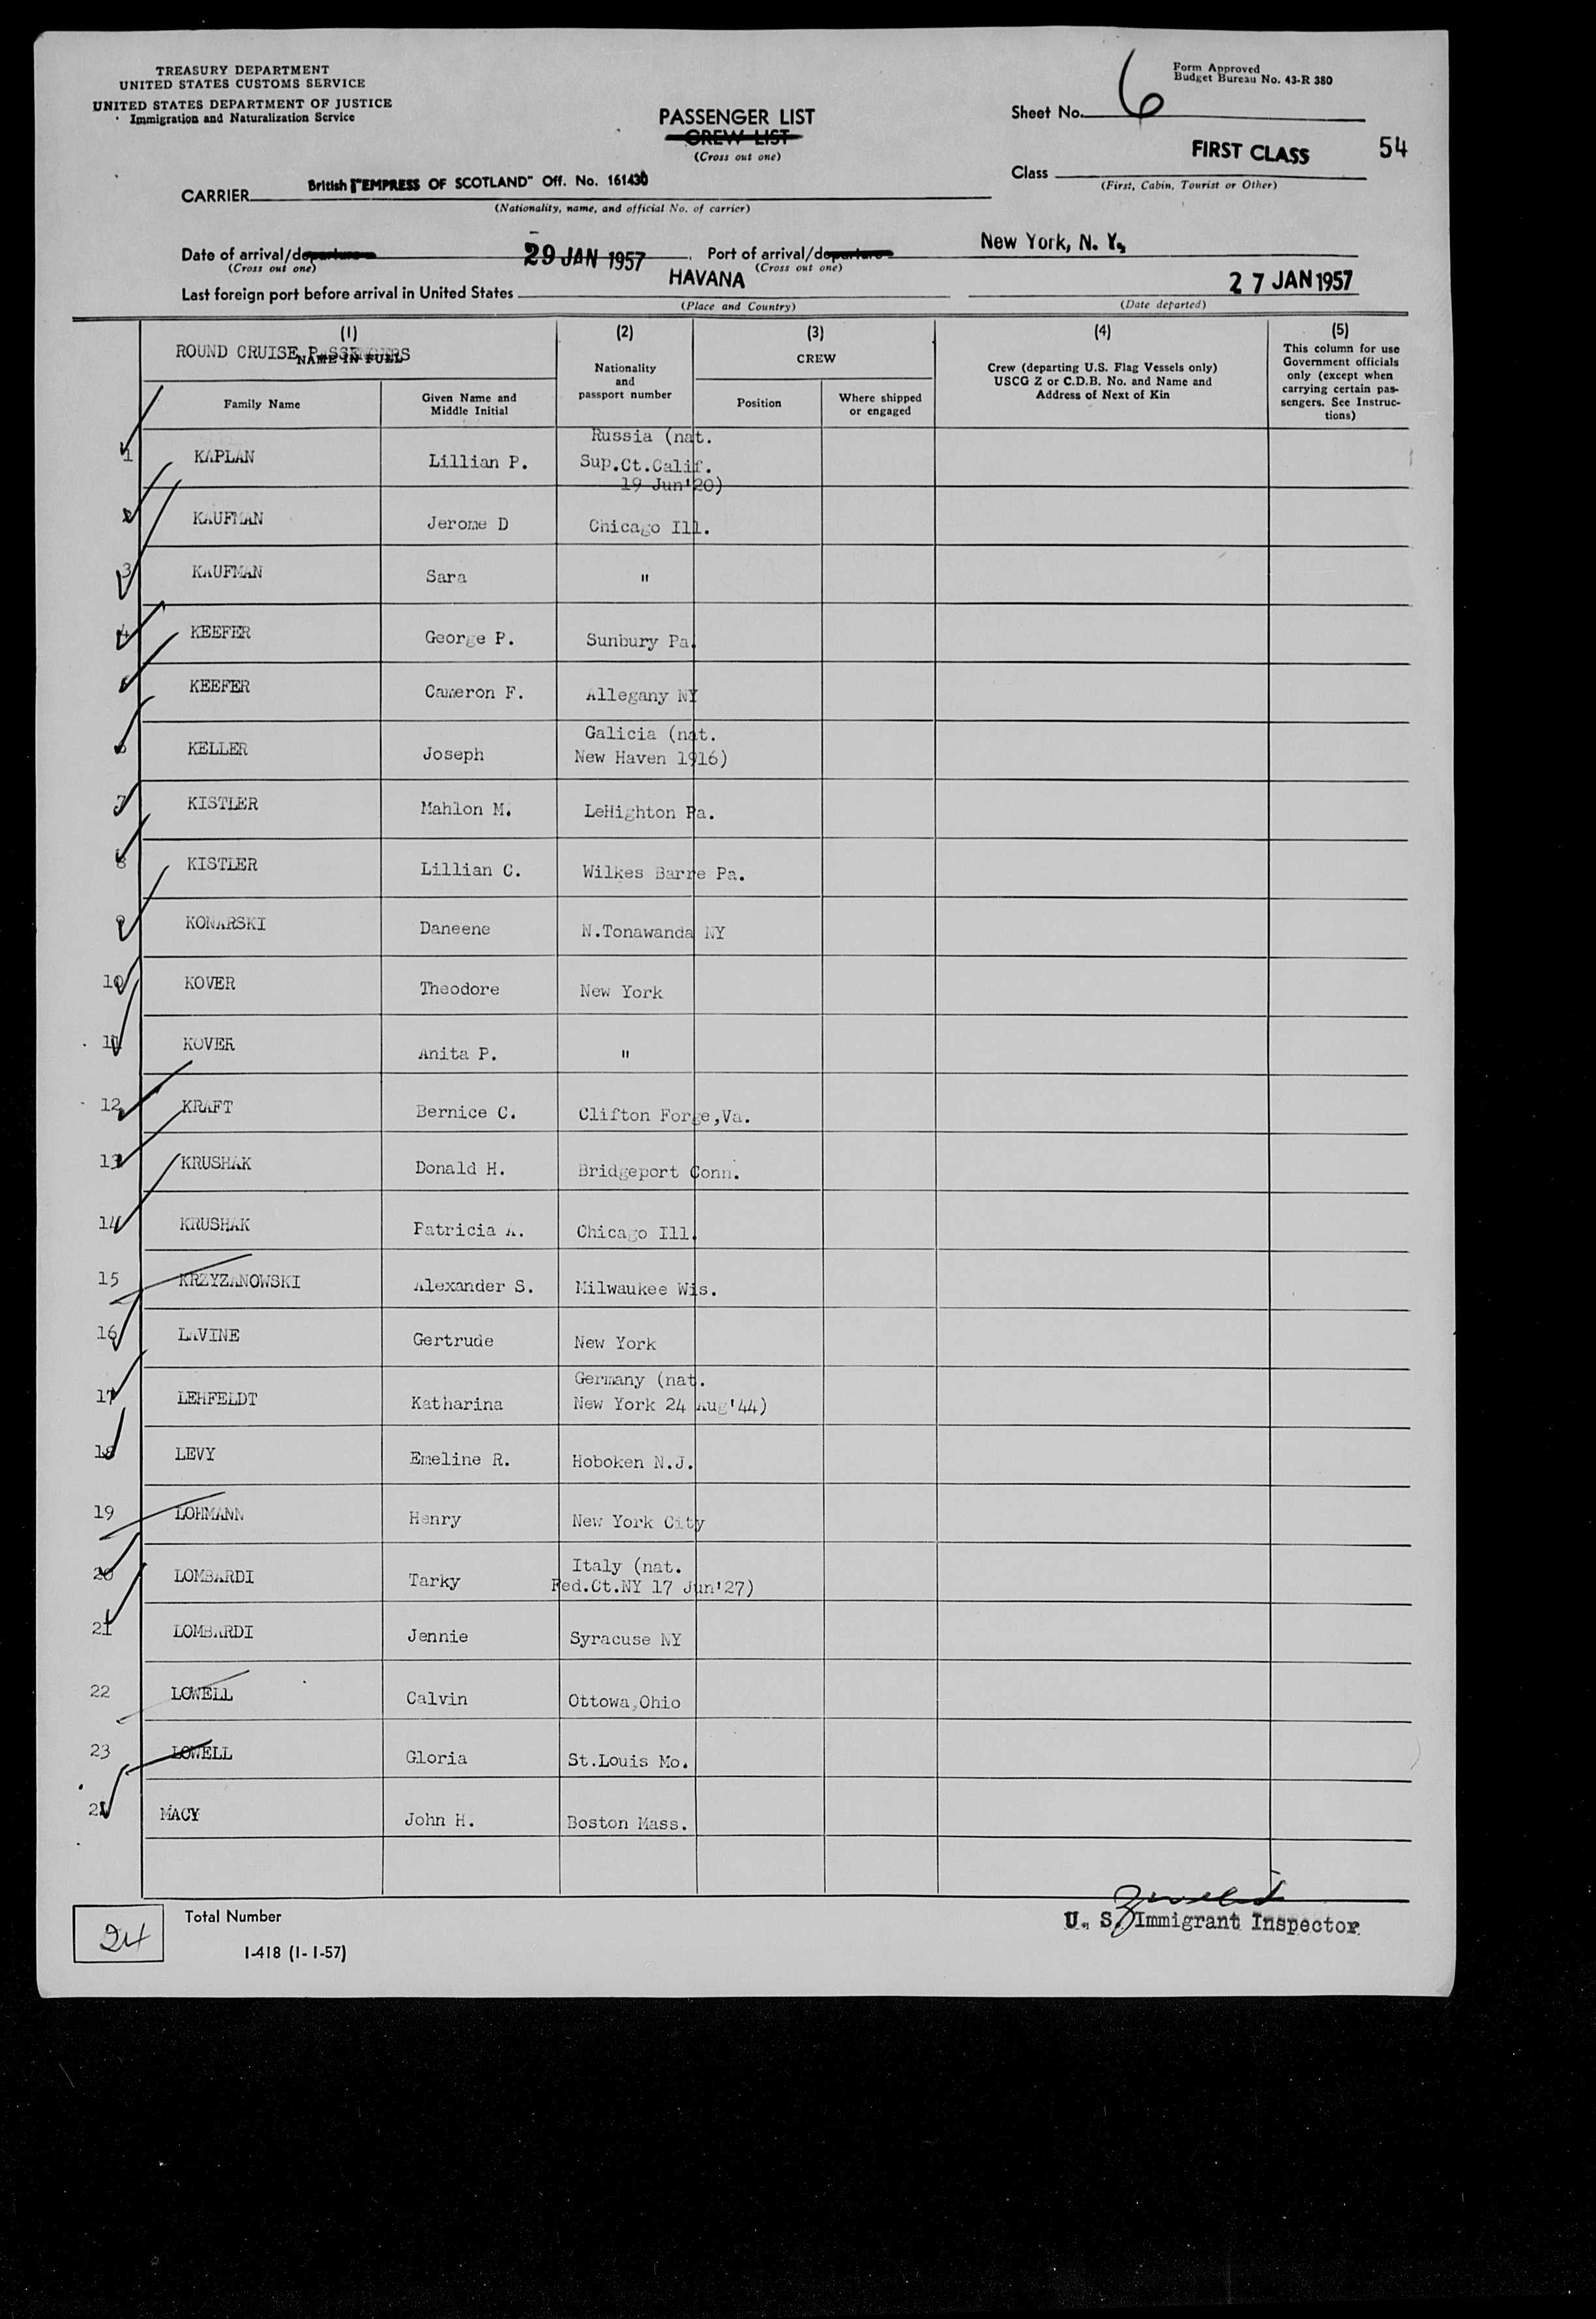 TREASURY DEPARTMENT
UNITED STATES CUSTOMS SERVICE
UNITED STATES DEPARTMENT OF JUSTICE
Immigration and Naturalization Service
Form Approved
Budget Bureau No. 43-R 380
PASSENGER LIST
CREW LIST
(Cross out one)
Sheet No. 6
FIRST CLASS 54
Class
(First, Cabin, Tourist or Other)
CARRIER British "EMPRESS OF SCOTLAND" Off. No. 161430
(Nationality, name, and official No. of carrier)
Date of arrival/departure 29 JAN 1957 Port of arrival/departure New York, N. Y.
(Cross out one) (Cross out one)
Last foreign port before arrival in United States HAVANA 27 JAN 1957
(Place and Country) (Date departed)
(1) (2) (3) (4) (5)
ROUND CRUISE PASSENGERS
NAME IN FULL
Nationality and passport number
CREW
Crew (departing U.S. Flag Vessels only)
USCG Z or C.D.B. No. and Name and
Address of Next of Kin
This column for use
Government officials
only (except when
carrying certain pas-
sengers. See Instruc-
tions)
Family Name
Given Name and
Middle Initial
Position
Where shipped
or engaged
1 KAPLAN Lillian P. Russia (nat.
Sup.Ct.Calif.
19 Jun'20)
2 KAUFMAN Jerome D Chicago Ill.
3 KAUFMAN Sara "
4 KEEFER George P. Sunbury Pa.
5 KEEFER Cameron F. Allegany NY
6 KELLER Joseph Galicia (nat.
New Haven 1916)
7 KISTLER Mahlon M. LeHighton Pa.
8 KISTLER Lillian C. Wilkes Barre Pa.
9 KONARSKI Daneene N.Tonawanda NY
10 KOVER Theodore New York
11 KOVER Anita P. "
12 KRAFT Bernice C. Clifton Forge,Va.
13 KRUSHAK Donald H. Bridgeport Conn.
14 KRUSHAK Patricia A. Chicago Ill.
15 KRZYZANOWSKI Alexander S. Milwaukee Wis.
16 LAVINE Gertrude New York
17 LEHFELDT Katharina Germany (nat.
New York 24 Aug'44)
18 LEVY Emeline R. Hoboken N.J.
19 LOHMANN Henry New York City
20 LOMBARDI Tarky Italy (nat.
Fed.Ct.NY 17 Jun'27)
21 LOMBARDI Jennie Syracuse NY
22 LOWELL Calvin Ottowa,Ohio
23 LOWELL Gloria St.Louis Mo.
24 MACY John H. Boston Mass.
24 Total Number
I-418 (1-1-57)
U. S. Immigrant Inspector